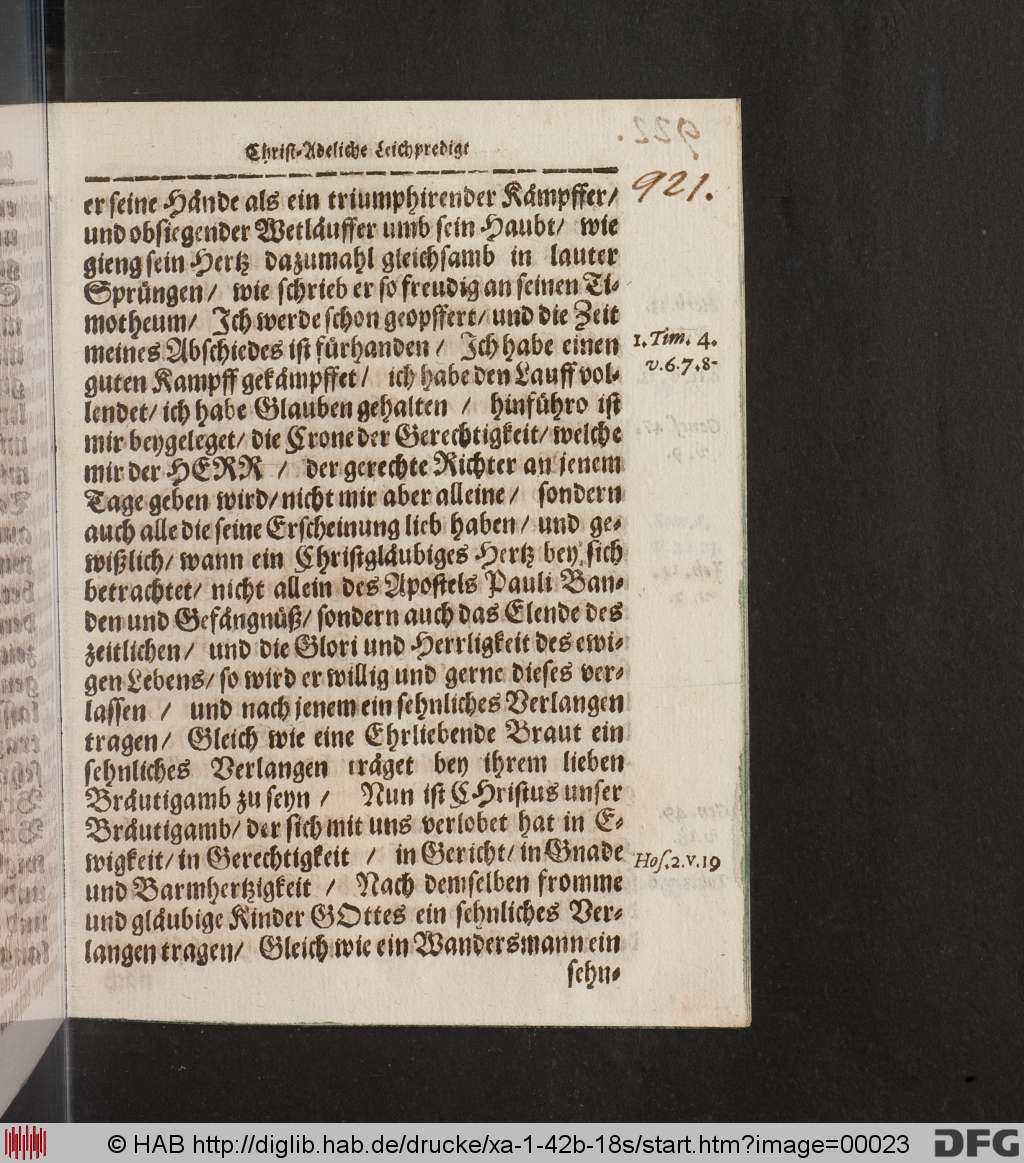 Christ-Adeliche Leichpredigt
921.
er seine Hände als ein triumphirender Kämpffer/
und obsiegender Wetläuffer umb sein Haubt/ wie
gieng sein Hertz dazumahl gleichsamb in lauter
Sprüngen/ wie schrieb er so freudig an seinen Ti-
motheum/ Ich werde schon geopffert/ und die Zeit
meines Abschiedes ist fürhanden/ Ich habe einen
1. Tim. 4.
v. 6. 7. 8-
guten Kampff gekämpffet/ ich habe den Lauff vol-
lendet/ ich habe Glauben gehalten / hinführo ist
mir beygeleget/ die Crone der Gerechtigkeit/ welche
mir der HERR / der gerechte Richter an jenem
Tage geben wird/ nicht mir aber alleine/ sondern
auch alle die seine Erscheinung lieb haben/ und ge-
wißlich/ wann ein Christgläubiges Hertz bey sich
betrachtet/ nicht allein des Apostels Pauli Ban-
den und Gefängnüß/ sondern auch das Elende des
zeitlichen/ und die Glori und Herrligkeit des ewi-
gen Lebens/ so wird er willig und gerne dieses ver-
lassen / und nach jenem ein sehnliches Verlangen
tragen/ Gleich wie eine Ehrliebende Braut ein
sehnliches Verlangen träget bey ihrem lieben
Bräutigamb zu seyn / Nun ist CHristus unser
Bräutigamb/ der sich mit uns verlobet hat in E-
wigkeit/ in Gerechtigkeit / in Gericht/ in Gnade
Hos. 2. v. 19
und Barmhertzigkeit / Nach demselben fromme
und gläubige Kinder GOttes ein sehnliches Ver-
langen tragen/ Gleich wie ein Wandersmann ein
sehn-
© HAB http://diglib.hab.de/drucke/xa-1-42b-18s/start.htm?image=00023
DFG